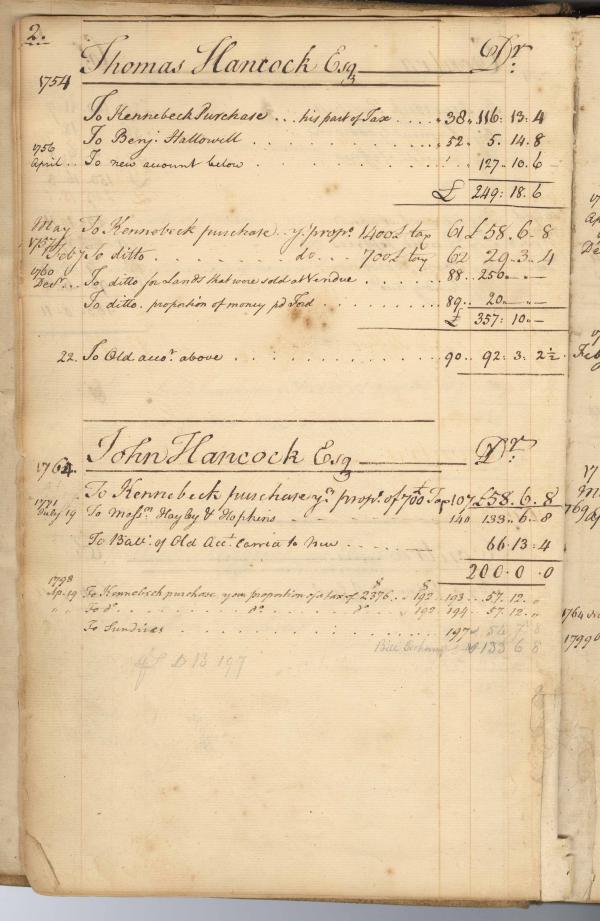 2.
Thomas Hancock Esq Dr
1754
To Kennebeck Purchase ... his part of Tax .... 38 116: 13: 4
To Benj. Hallowell 52. 5. 14. 8
1756
April .. To new account below 127. 10. 6
£ 249: 18. 6
May To Kennebeck purchase yr propn 1400£ tax 61 £58. 6. 8
1757
Feby To ditto do 700£ tax 62 29. 3. 4
1760
Decr To ditto for Lands that were sold at Vendue 88. 256 " — " —
To ditto. proportion of money pd Ford 89. 20 " — " —
£ 357: 10 " —
22. To Old accot above 90. 92: 3: 2½
John Hancock Esq Dr
1764.
To Kennebeck purchase yr propn of 700£ Tax 107 £58. 6. 8
1771
July 19 To Messrs Hayley & Hopkins 140 133. 6. 8
To Balla of Old Acct Carrid to New 66. 13: 4
200. 0. 0
1798
Ap. 19 To Kennebeck purchase your proportion of a tax of $2376 .. $192 .. 193 .. 57. 12. "
" " To do do do 192 194 .. 57. 12. "
To Sundries 197 56 7 8
Bill Exchange 133 6 8
D B 197